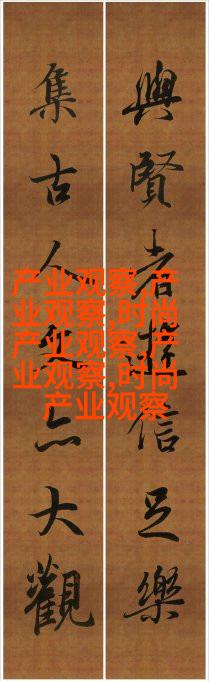 與賢者遊信足樂
集古人文亦大觀
产业观察,产
业观察,时尚
产业观察,产
业观察,时尚
产业观察